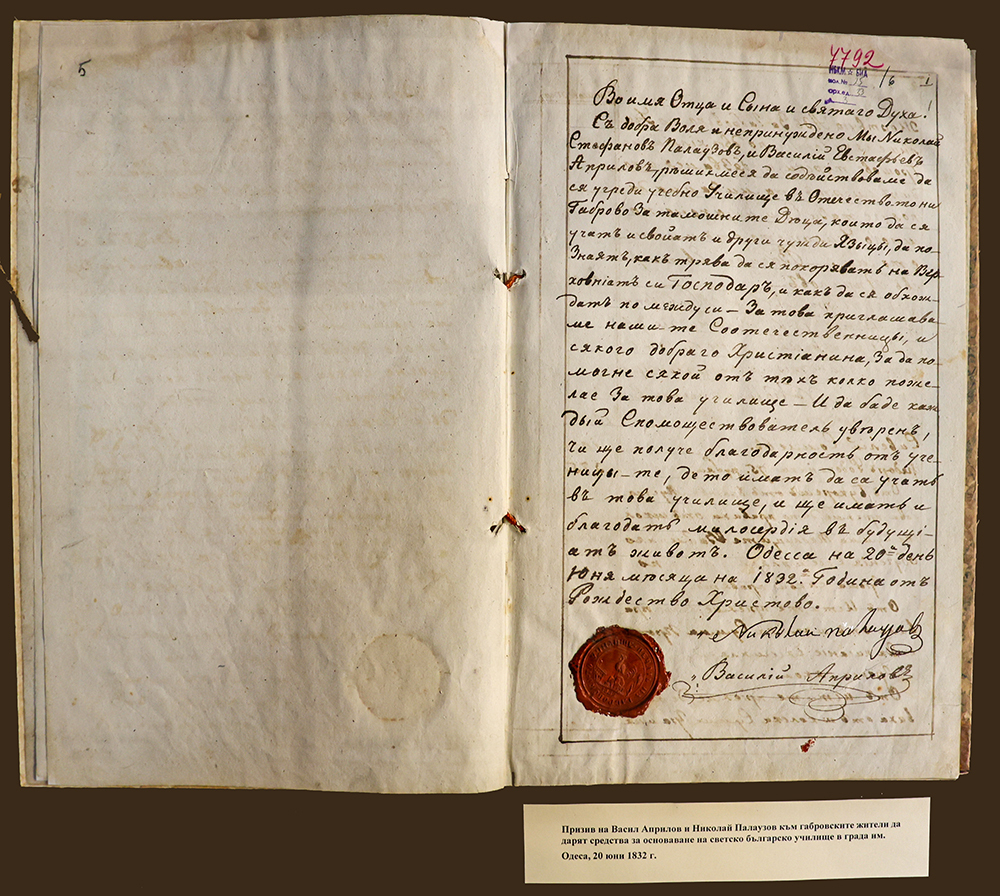 5
7792
НБКМ БИА
/6 1
Во имя Отца и Сына и святаго Духа!
Съ добра Воля и непринуждено Мы Николай
Стефановъ Палаузовъ, и Василій Евстафьевъ
Априловъ, рѣшихмеся да содѣйствоваме да
ся угреди учебно Училище въ Отечеството ни
Габрово За тамошните Дѣца, които да ся
учатъ и своиатъ и други чужди Языцы, да по-
Знаятъ, какъ трява да ся покоряватъ на Вер-
ховніатъ си Господаръ, и какъ да ся обхож-
датъ по между си — За това приглашава-
ме наши те Соотечественницы, и
сякого добраго Христіанина, За да по-
могне сякой отъ тѣхъ колко поже-
лае За това училище — И да баде каж-
дый Спомоществователь увѣренъ,
чи ще получе благодарность отъ уче-
ницы-те, дето иматъ да са учатъ
въ това училище, и ще иматъ и
благодать милосердія въ будущі-
атъ животъ. Одесса на 20й день
Юня мѣсяца на 1832. Година отъ
Рождество Христово.
Николай Палаузов
Василій Априловъ
Призив на Васил Априлов и Николай Палаузов към габровските жители да
дарят средства за основаване на светско българско училище в града им.
Одеса, 20 юни 1832 г.